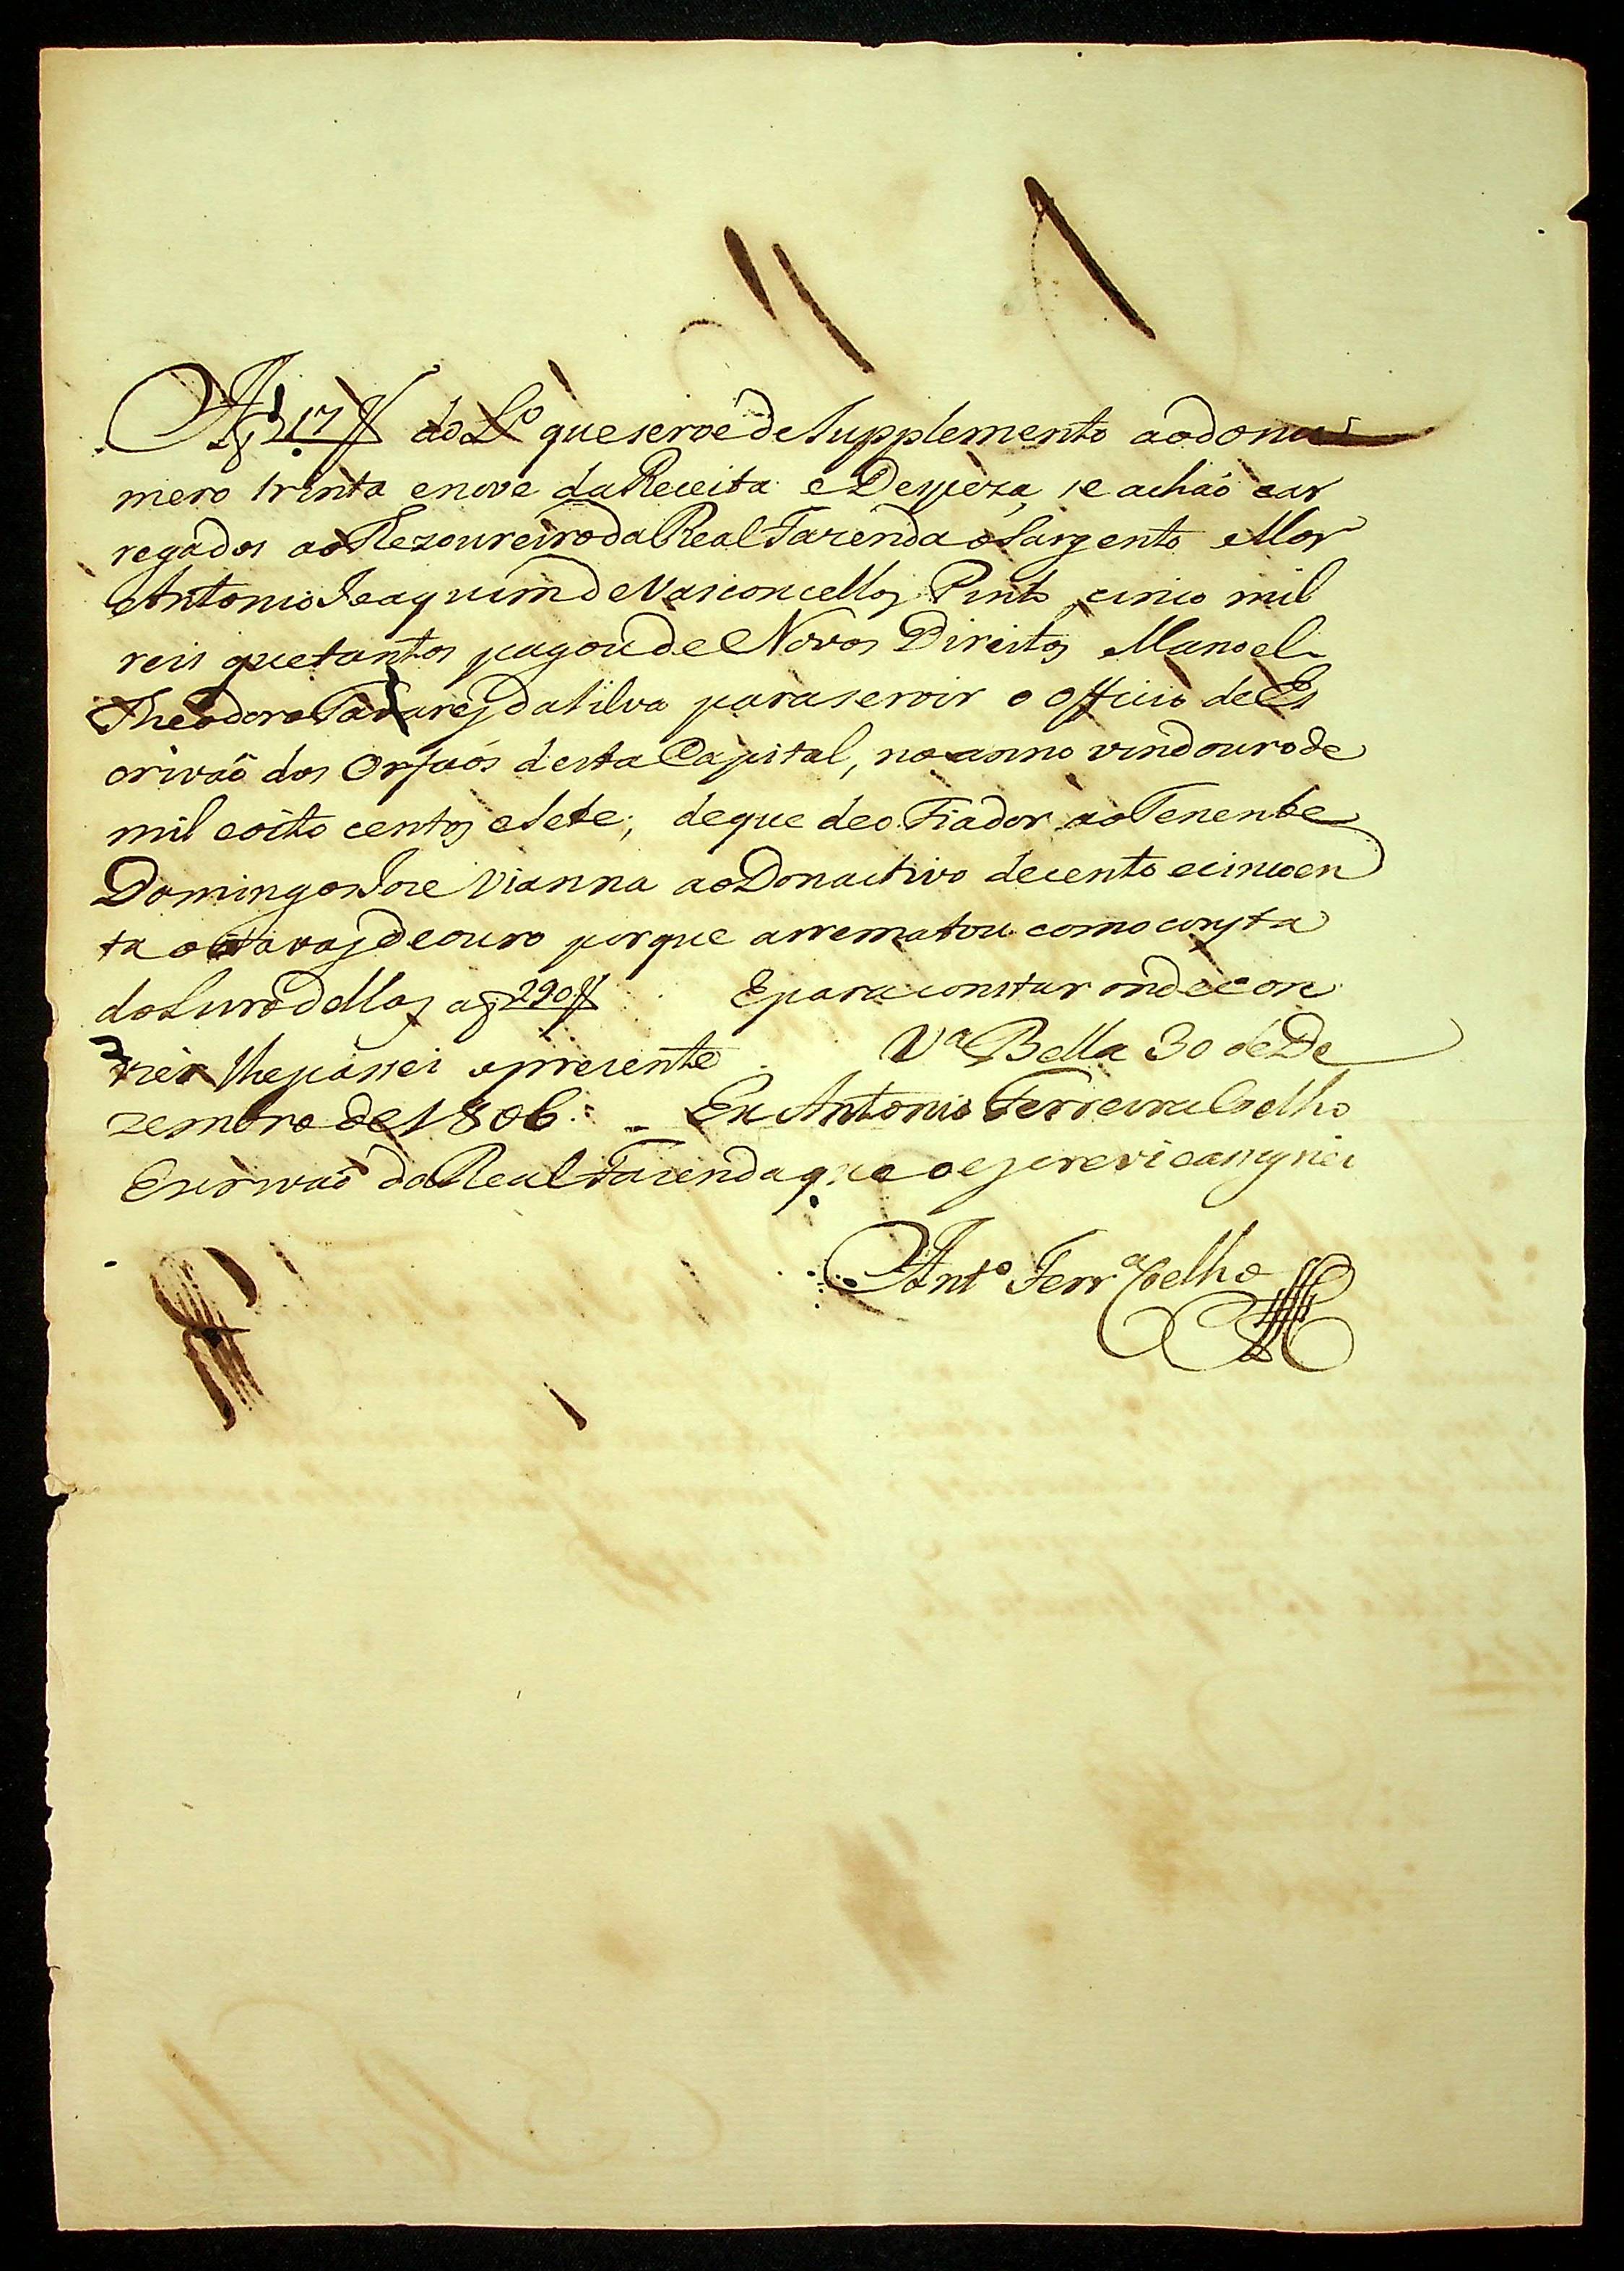 A f 217 do L.o que serve de Supplemento ao do nu
mero trinta e nove da Receita e Despeza, se achaõ car
regados ao Thezoureiro da Real Fazenda o Sargento Mor
Antonio Joaquim de Vasconcellos Pinto cinco mil
reis que tantos pagou de Novos Direitos Manoel
Theodoro Tavares da Silva para servir o officio de Es
crivaõ dos Orfaõs desta Capital, no anno vindouro de
mil e oito centos e Sete, de que deo Fiador ao Tenente
Domingos Jose Vianna ao Donactivo de cento e cincoen
ta oitavas de ouro porque arrematou como consta
do Livro dellas a f 290 E para constar onde con
vier lhe passei a presente. V.a Bella 30 de De
zembro de 1806. Eu Antonio Ferreira Coelho
Escrivaõ da Real Fazenda que o escrevi e assignei
Ant.o Ferr.a Coelho